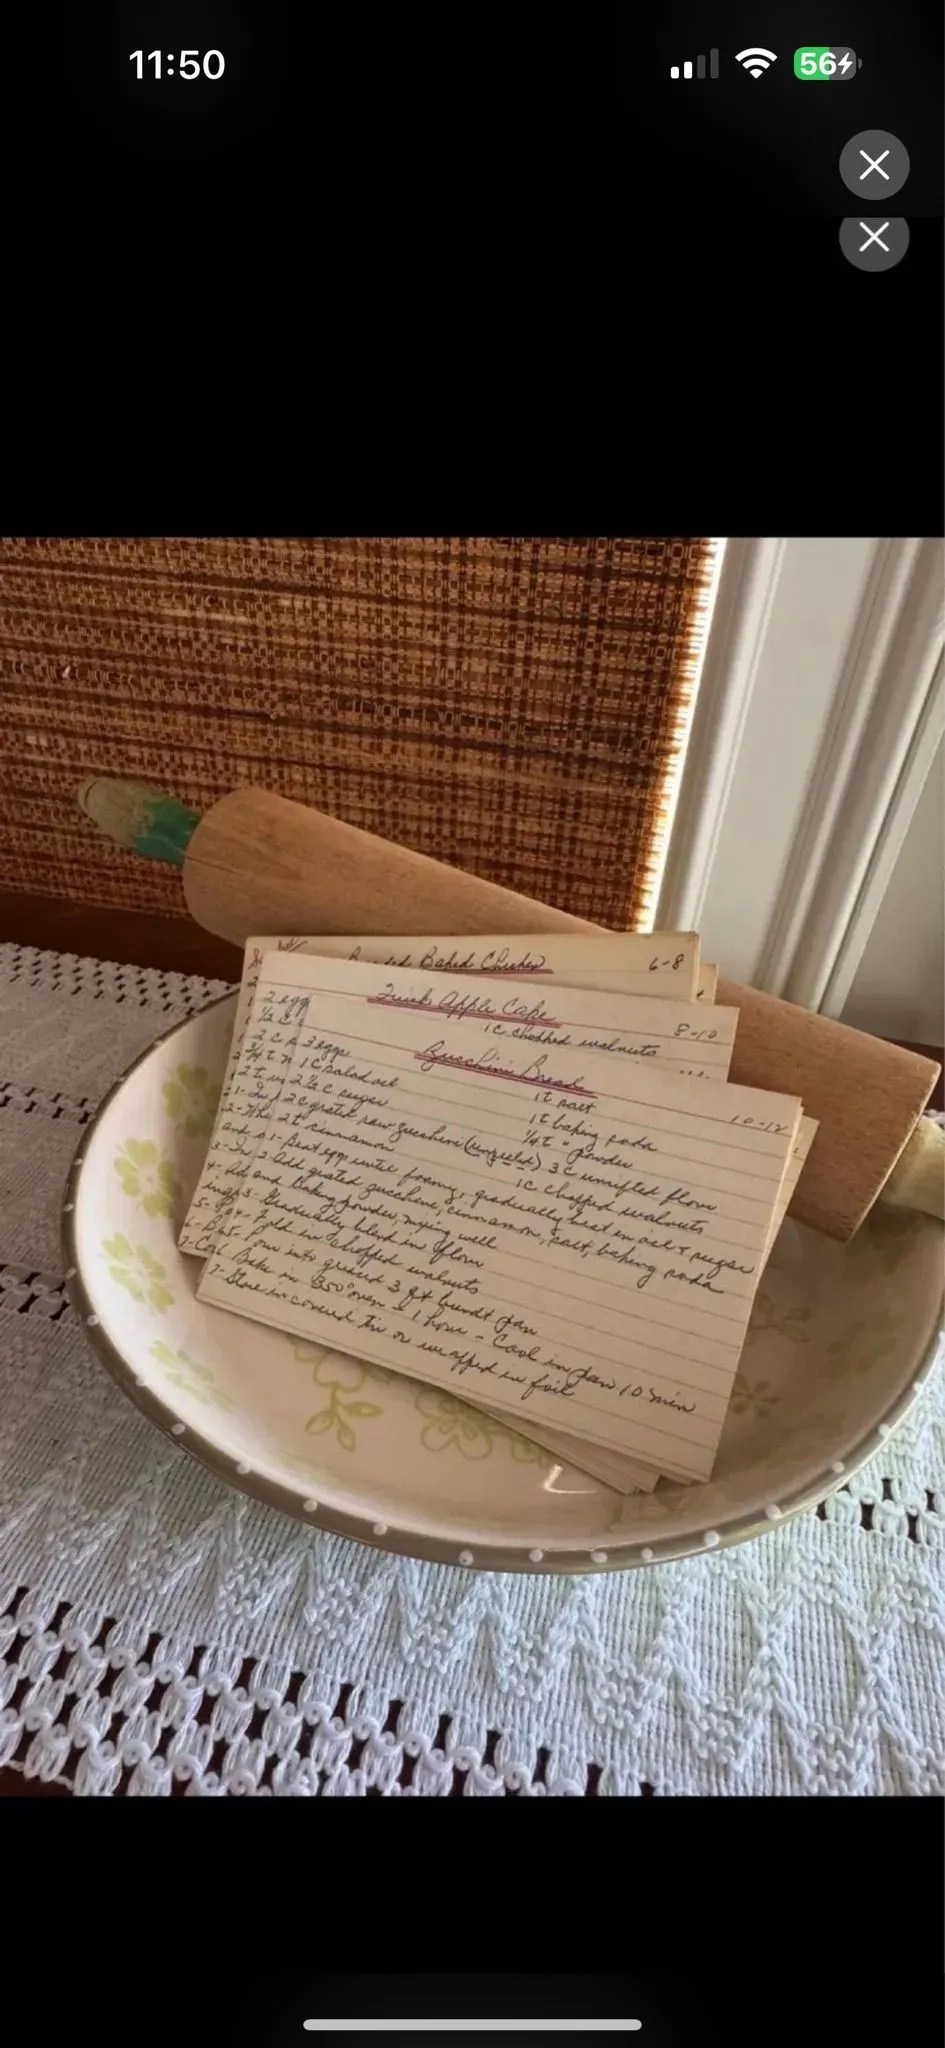 11:50
56
Baked Chicken
6-8
Apple Cake
8-10
1C chopped walnuts
2 egg
Zucchini Bread
10-12
3 eggs
1t salt
1C salad oil
1t baking soda
2 1/2 C sugar
1/4t " powder
2C grated raw zucchini (unpeeled)
3C unsifted flour
2t cinnamon
1C chopped walnuts
1- Beat eggs until foamy, gradually beat in oil & sugar
2 Add grated zucchini, cinnamon, salt, baking soda
and baking powder, mixing well
3- Gradually blend in flour
4- Fold in chopped walnuts
5- Pour into greased 3 qt bundt pan
Bake in 350° oven 1 hour - Cool in pan 10 min
7- Store in covered tin or wrapped in foil